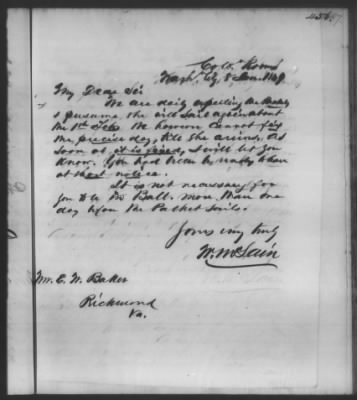 Coln. Rooms
Wash. Cy. 8 Jan. 1849
My Dear Sir
We are daily expecting the
I presume she will sail again about
the 1st Feb. We however cannot fix
the precise day till she arrives. As
soon as it is fixed, I will let you
know. You had better be ready to leave
at short notice.
It is not necessary for
you to be in Balt. more than one
day before the Packet sails.
Yours very truly
W. McLain
Mr. E. W. Baker
Richmond
Va.